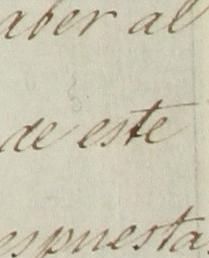 aber al
de este
espuesta